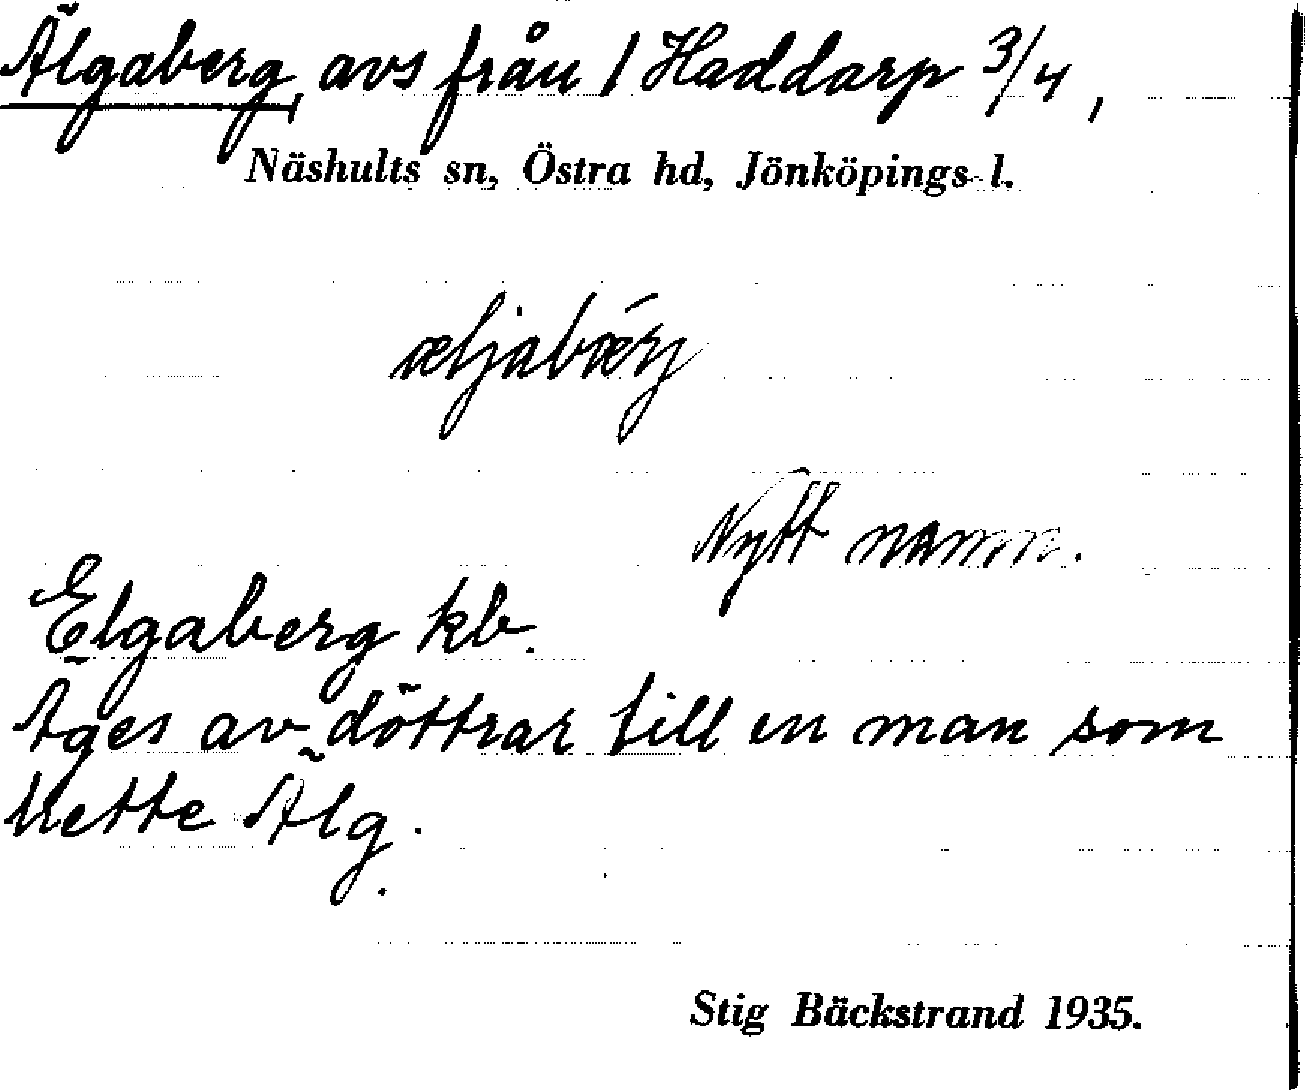 Älgaberg, avs från 1 Haddarp 3/4,
Näshults sn, Östra hd, Jönköpings l.
æljabǽrj
Nytt namn.
Elgaberg kb.
Äges av döttrar till en man som
hette Älg.
Stig Bäckstrand 1935.